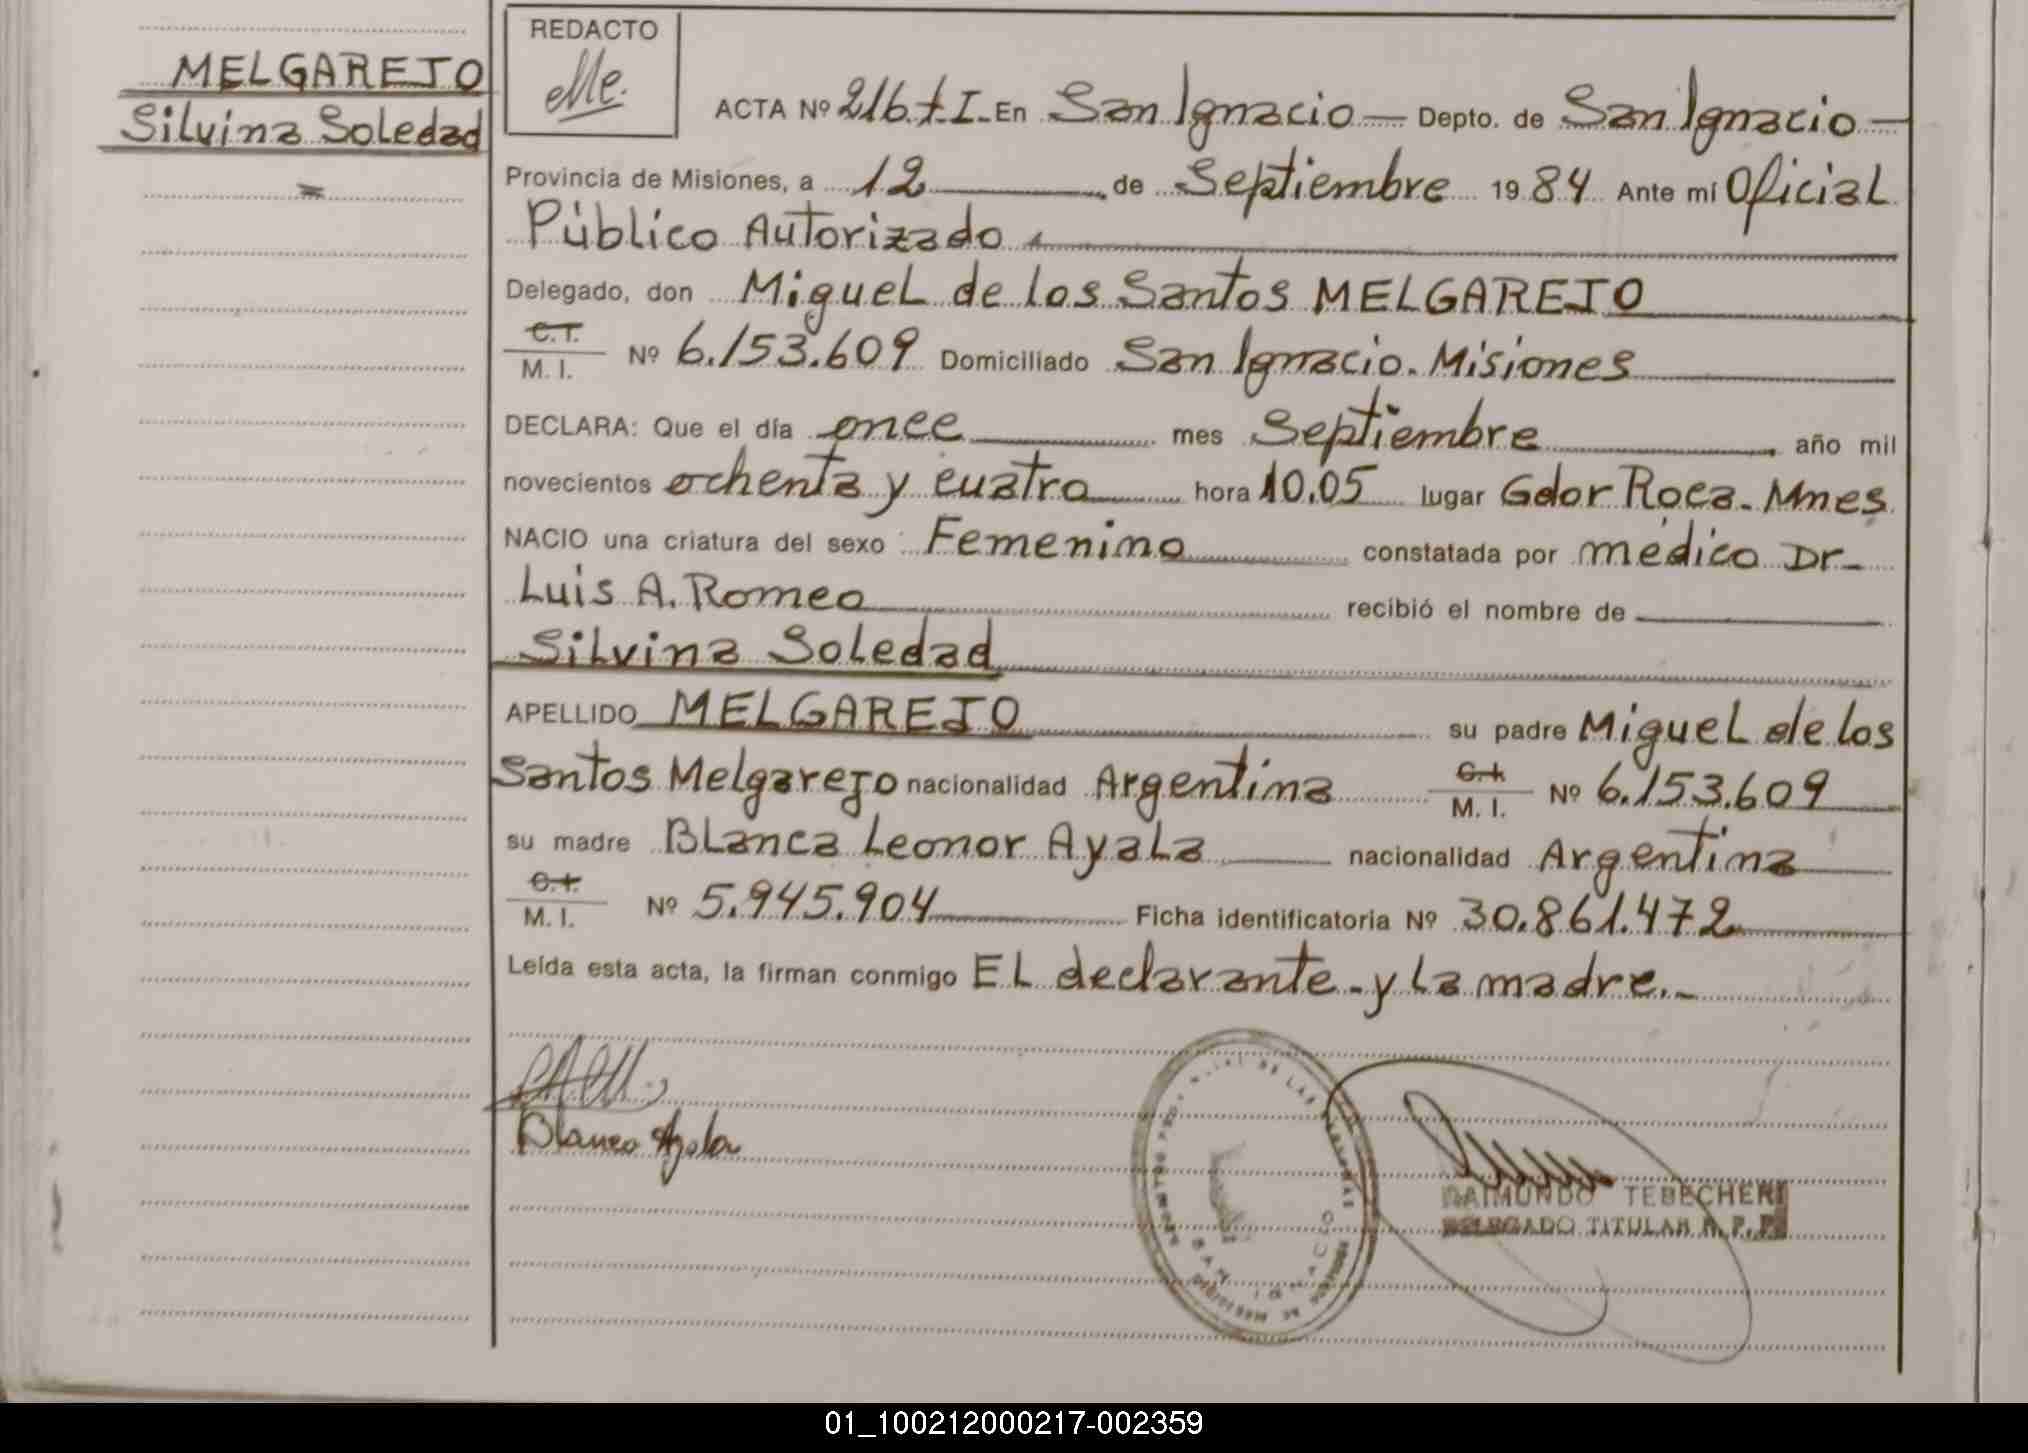 MELGAREJO
Silvina Soledad
REDACTO
ACTA Nº 216.t.I. En San Ignacio Depto. de San Ignacio
Provincia de Misiones, a 12 de Septiembre 1984 Ante mí Oficial
Público Autorizado
Delegado, don Miguel de los Santos MELGAREJO
C.I.
M. I. Nº 6.153.609 Domiciliado San Ignacio. Misiones
DECLARA: Que el día once mes Septiembre año mil
novecientos ochenta y cuatro hora 10.05 lugar Gdor Roca. Mnes
NACIO una criatura del sexo Femenino constatada por médico Dr.
Luis A. Romeo recibió el nombre de
Silvina Soledad
APELLIDO MELGAREJO su padre Miguel de los
Santos Melgarejo nacionalidad Argentina C.I. M. I. Nº 6.153.609
su madre Blanca Leonor Ayala nacionalidad Argentina
C.I.
M. I. Nº 5.945.904 Ficha identificatoria Nº 30.861.472
Leída esta acta, la firman conmigo El declarante - y la madre.-
Blanca Ayala
DE LAS PERSONAS
SAN IGNACIO
RAIMUNDO TEBECHERI
DELEGADO TITULAR R. P. P.
01_100212000217-002359